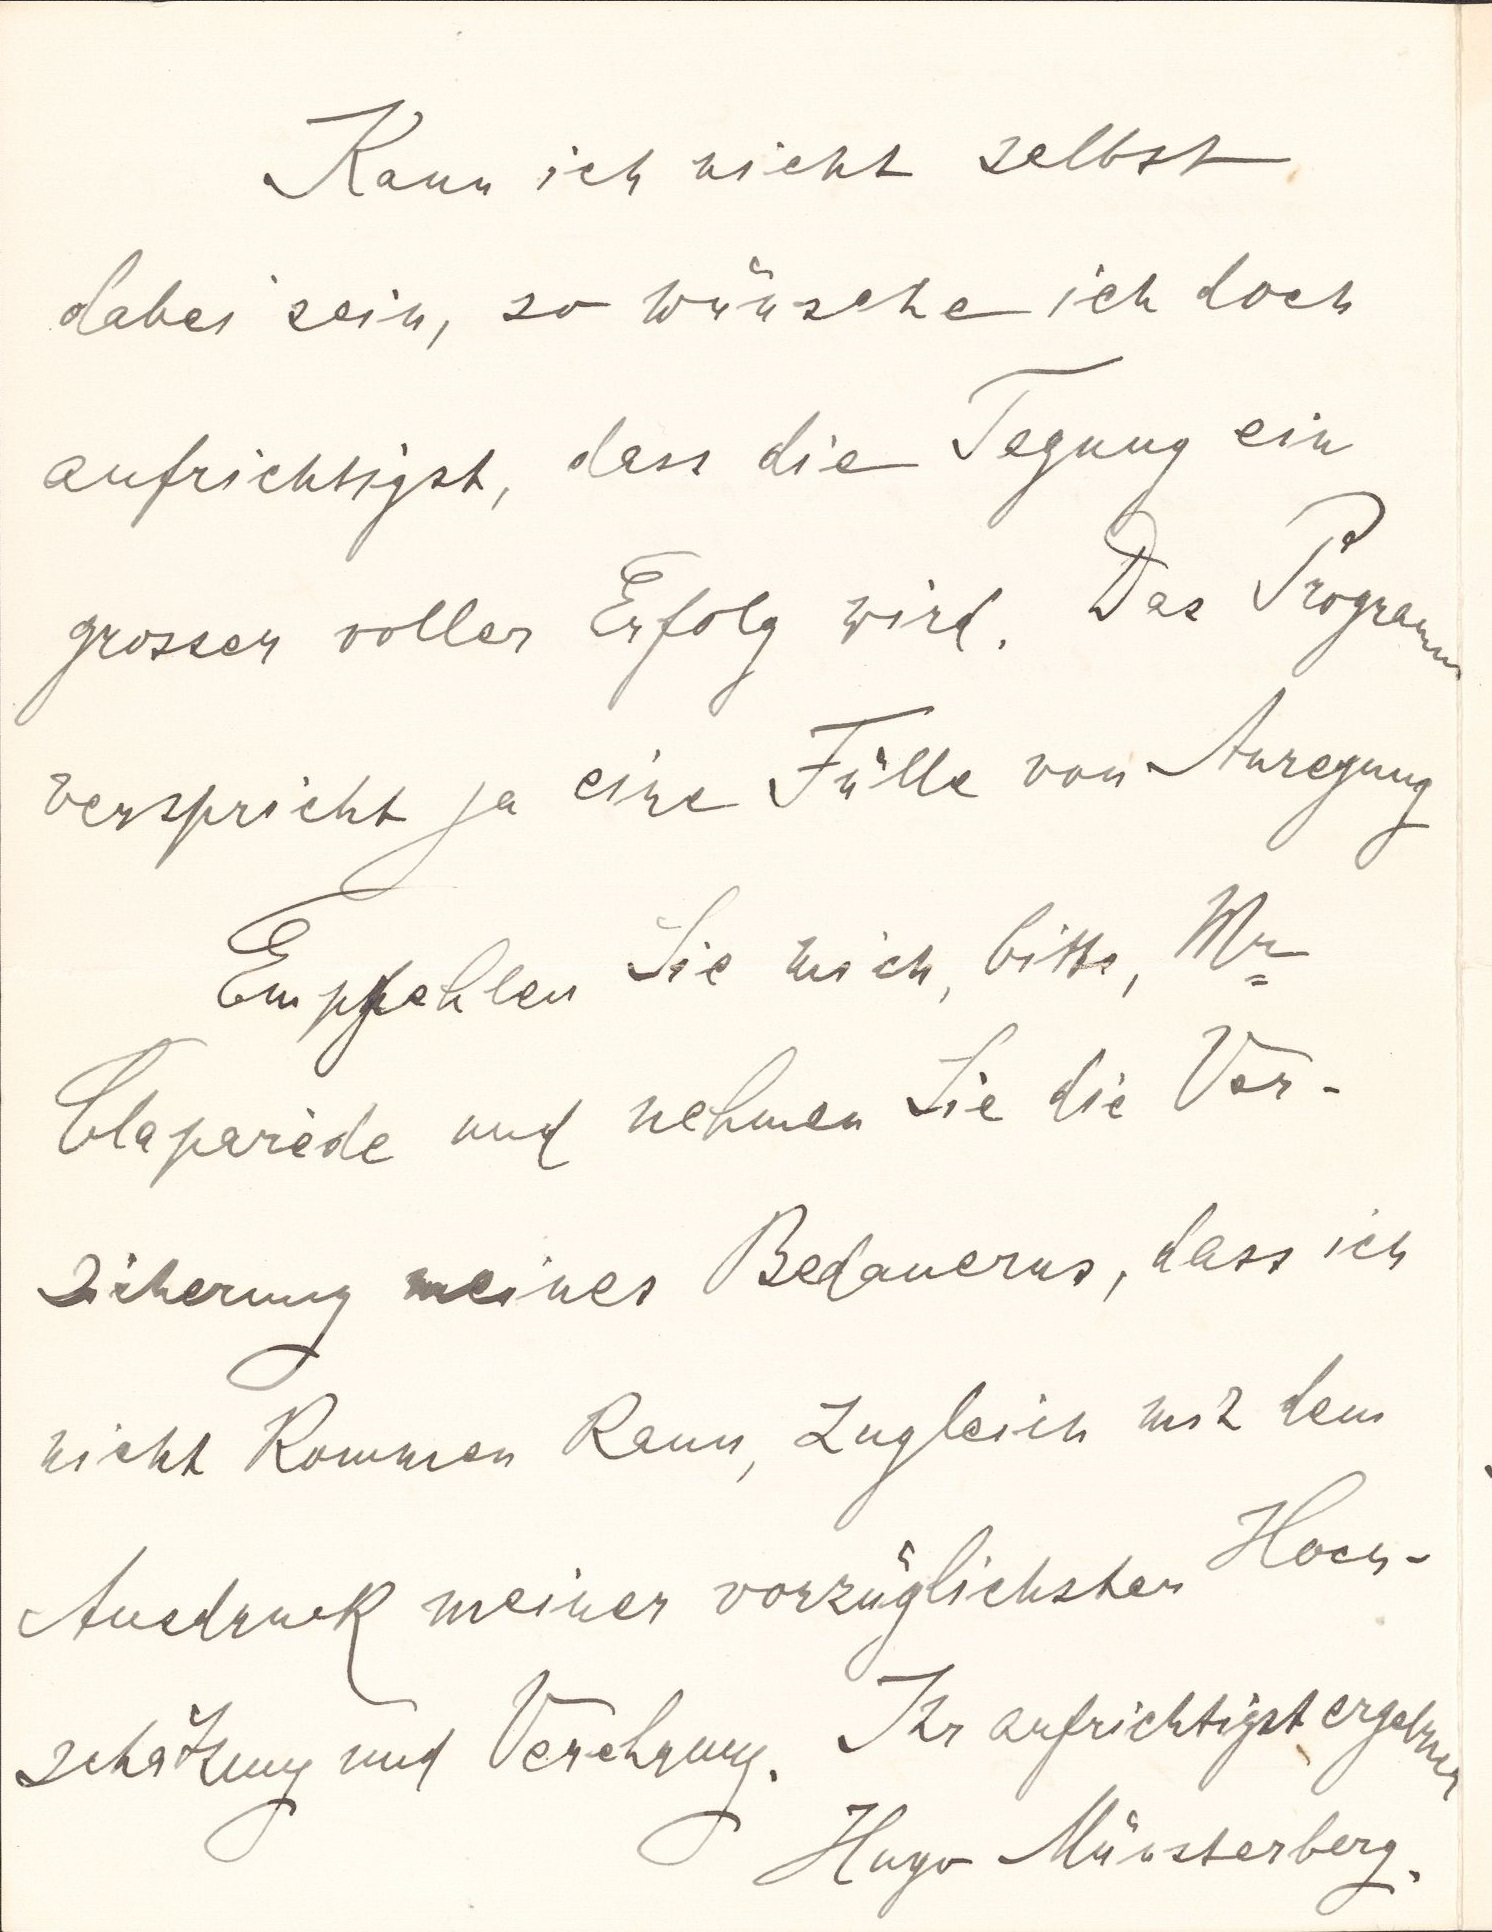 Kann ich nicht selbst
dabei sein, so wünsche ich doch
aufrichtigst, dass die Tagung ein
grosser voller Erfolg wird. Das Programm
verspricht ja eine Fülle von Anregung
Empfehlen Sie mich, bitte, Mr
Claparède und nehmen Sie die Ver-
sicherung meines Bedauerns, dass ich
nicht kommen kann, zugleich mit dem
Ausdruck meiner vorzüglichsten Hoch-
schätzung und Verehrung. Ihr aufrichtigst ergebner
Hugo Münsterberg.